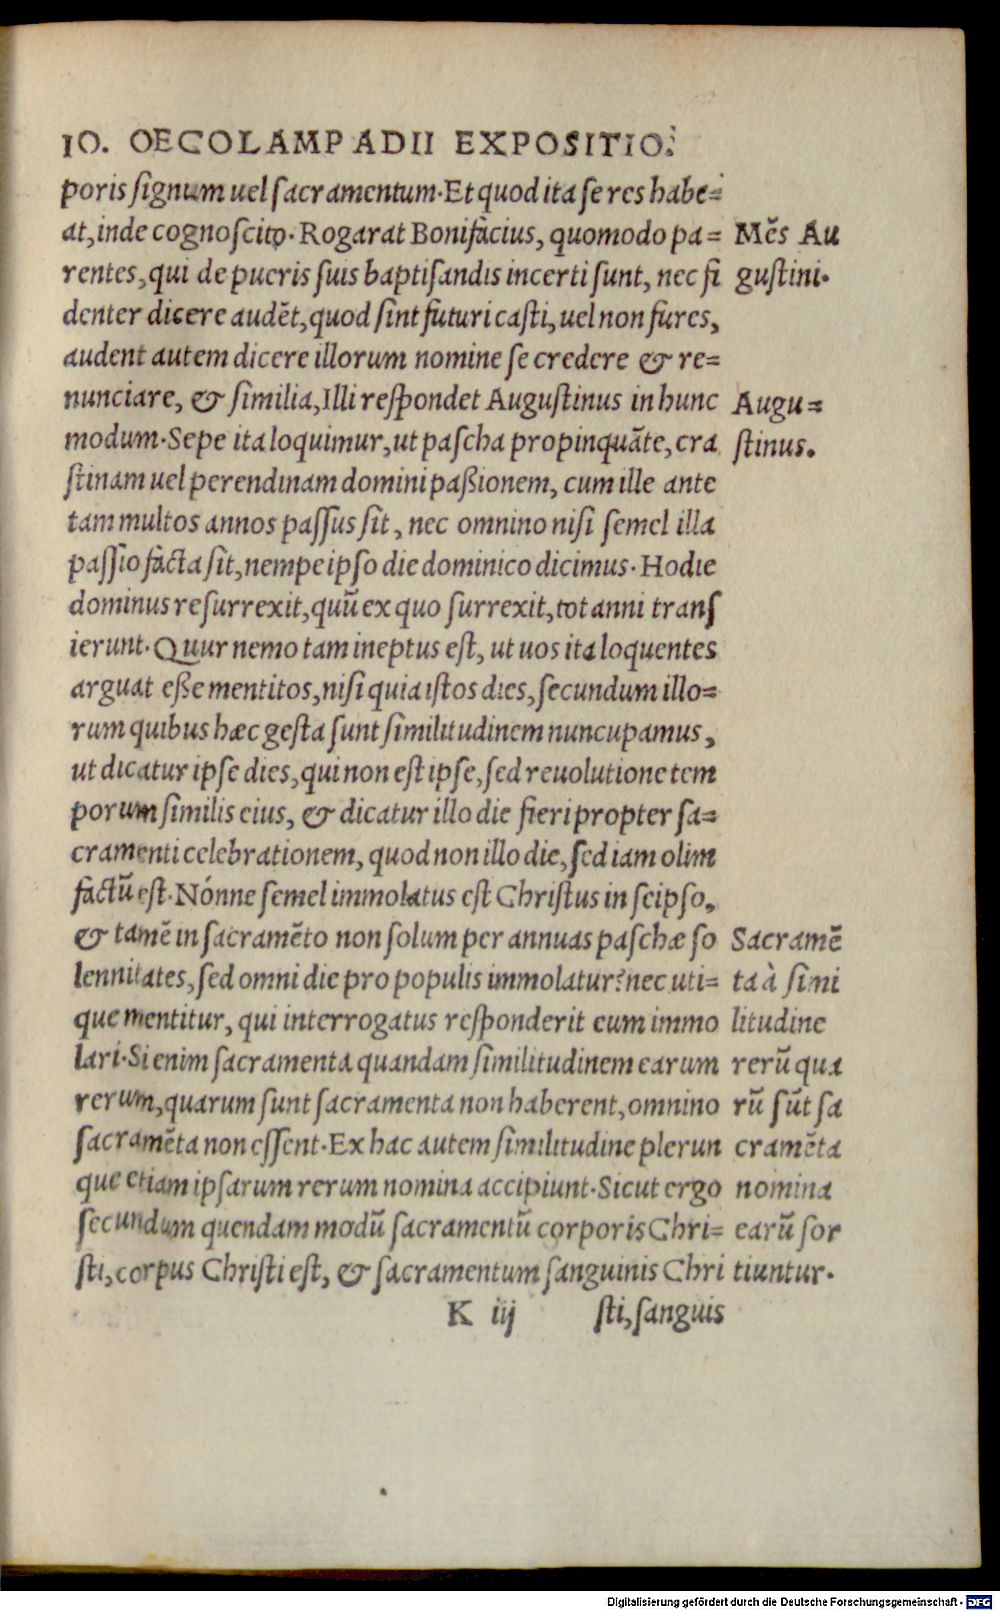 IO. OECOLAMPADII EXPOSITIO.
poris ſignum uel ſacramentum. Et quod ita ſe res habe=
at, inde cognoſcito. Rogarat Bonifacius, quomodo pa=
rentes, qui de pueris ſuis baptiſandis incerti ſunt, nec fi
denter dicere audēt, quod ſint futuri caſti, uel non fures,
audent autem dicere illorum nomine ſe credere & re=
nunciare, & ſimilia, Illi reſpondet Auguſtinus in hunc
modum. Sepe ita loquimur, ut paſcha propinquāte, cra
ſtinam uel perendinam domini paßionem, cum ille ante
tam multos annos paſſus ſit, nec omnino niſi ſemel illa
paſſio facta ſit, nempe ipſo die dominico dicimus. Hodie
dominus reſurrexit, quū ex quo ſurrexit, tot anni tranſ
ierunt. Quur nemo tam ineptus eſt, ut uos ita loquentes
arguat eße mentitos, niſi quia iſtos dies, ſecundum illo=
rum quibus hæc geſta ſunt ſimilitudinem nuncupamus,
ut dicatur ipſe dies, qui non eſt ipſe, ſed reuolutione tem
porum ſimilis eius, & dicatur illo die fieri propter ſa=
cramenti celebrationem, quod non illo die, ſed iam olim
factū eſt. Nónne ſemel immolatus eſt Chriſtus in ſeipſo,
& tamē in ſacramēto non ſolum per annuas paſchæ ſo
lennitates, ſed omni die pro populis immolatur? nec uti=
que mentitur, qui interrogatus reſponderit eum immo
lari. Si enim ſacramenta quandam ſimilitudinem earum
rerum, quarum ſunt ſacramenta non haberent, omnino
ſacramēta non eſſent. Ex hac autem ſimilitudine plerun
que etiam ipſarum rerum nomina accipiunt. Sicut ergo
ſecundum quendam modū ſacramentū corporis Chri=
ſti, corpus Chriſti eſt, & ſacramentum ſanguinis Chri
K iij ſti, ſanguis
Mēs Au
guſtini.
Augu=
ſtinus.
Sacramē
ta à ſimi
litudine
rerū qua
rū ſūt ſa
cramēta
nomina
earū ſor
tiuntur.
Digitalisierung gefördert durch die Deutsche Forschungsgemeinschaft - DFG